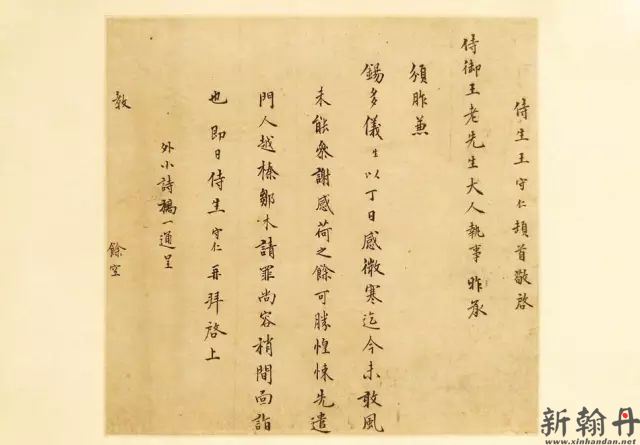 侍生王守仁頓首敬啓
侍御王老先生大人執事昨承
頒胙兼
錫多儀生以丁日感微寒迄今未敢風
未能參謝感荷之餘可勝惶悚先遣
門人越榛鄒木請罪尚容稍間面詣
也即日侍生守仁再拜啓上
外小詩稿一通呈
教
餘空
新翰丹
www.xinhandan.net